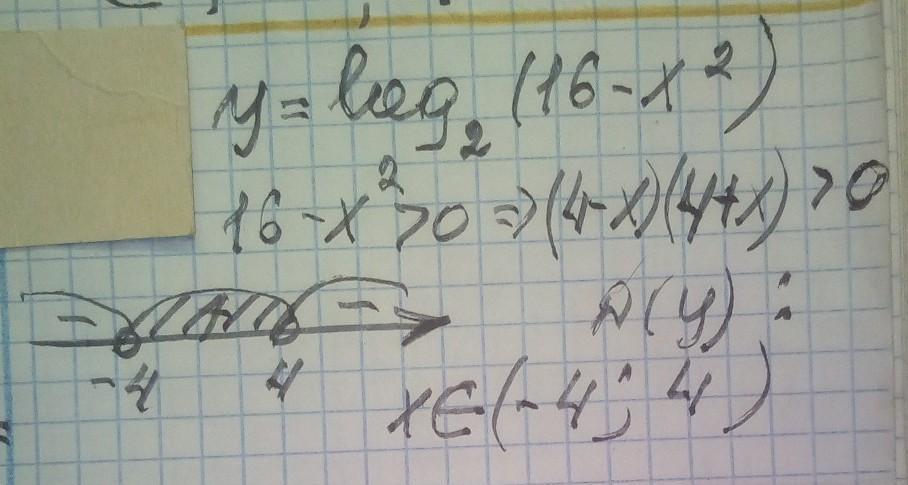 y = log₂ (16 - x²)
16 - x² > 0 ⇒ (4 - x)(4 + x) > 0
- + -
-4 4
D(y) :
x ∈ (-4; 4)